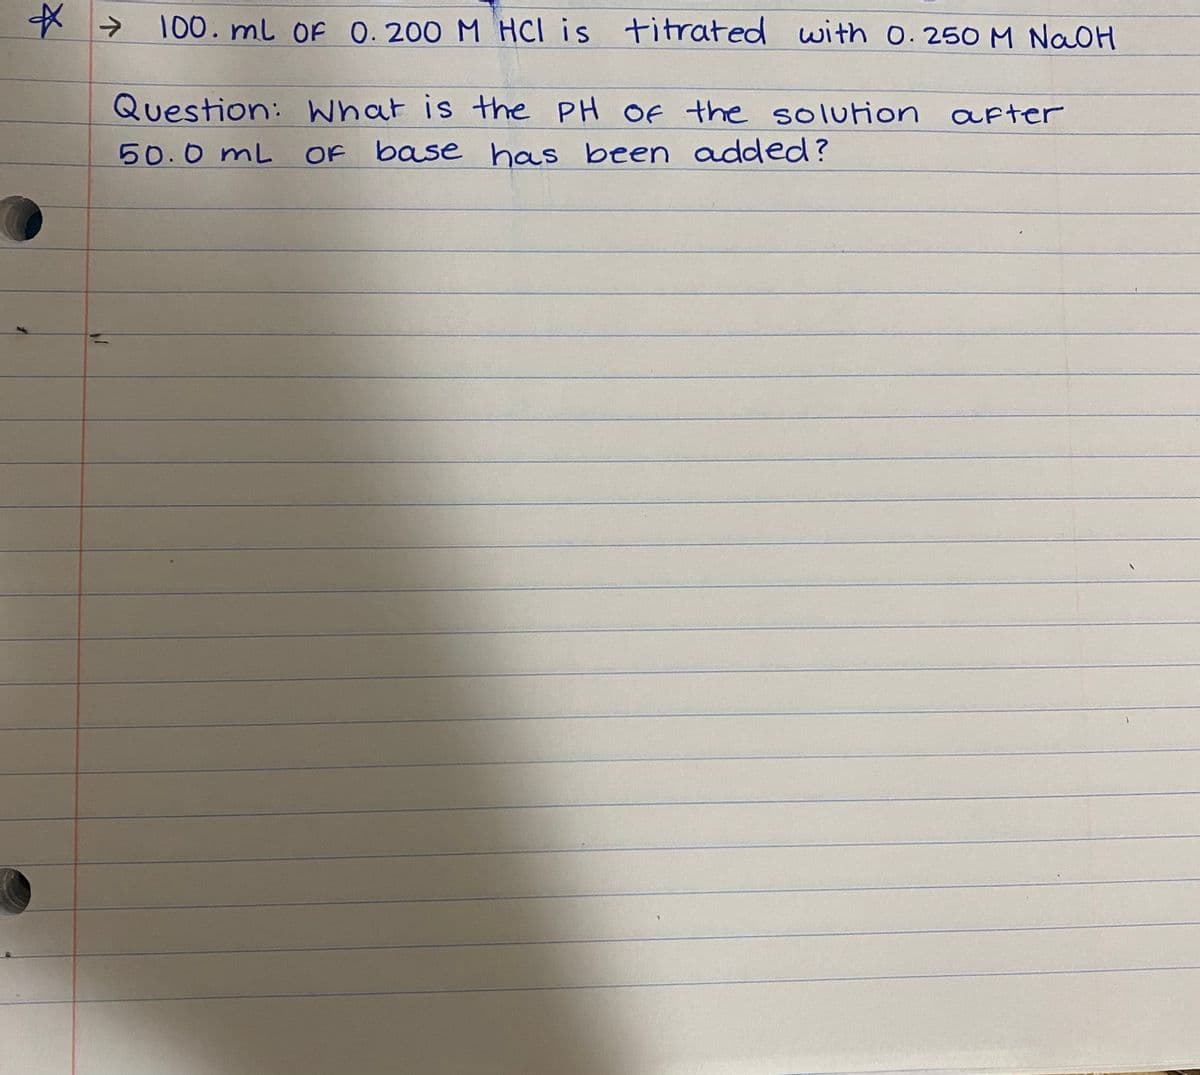 ☆ → 100. mL OF 0.200 M HCl is titrated with 0.250 M NaOH
Question: What is the PH OF the solution after
50.0 mL OF base has been added?